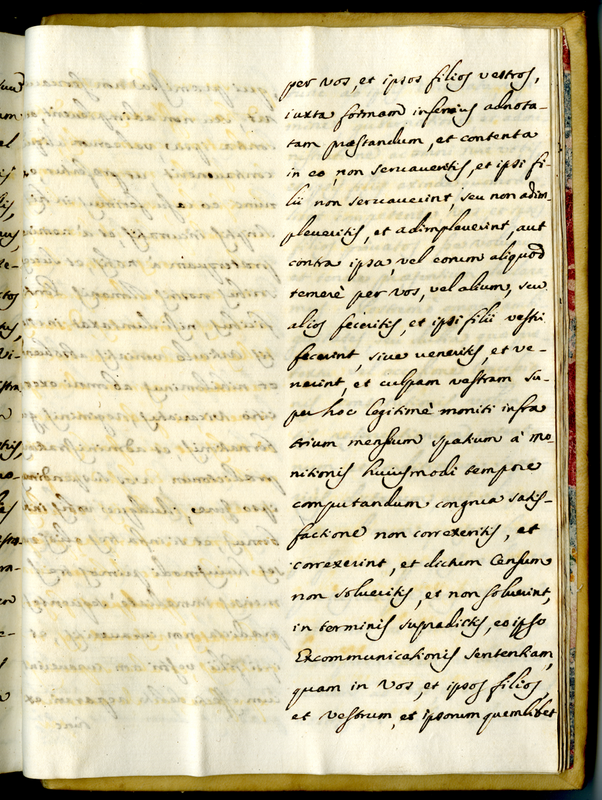 per vos, et ipsos filios vestros,
iuxta formam inferius adnota-
tam præstandum, et contenta
in eo, non servaveritis, et ipsi fi-
lii non servaverint, seu non adim-
pleveritis, et adimpleverint, aut
contra ipsa, vel eorum aliquod
temerè per vos, vel alium, seu
alios feceritis, et ipsi filii vestri
fecerint, sive veneritis, et ve-
nerint, et culpam vestram su-
per hoc legitimè moniti infra
trium mensium spatium à mo-
nitionis huiusmodi tempore
computandum congrua satis-
factione non correxeritis, et
correxerint, et dictum Censum
non solveritis, et non solverint,
in terminis supradictis, eo ipso
Excommunicationis sententiam,
quam in vos, et ipsos filios,
et vestrum, et ipsorum quemlibet